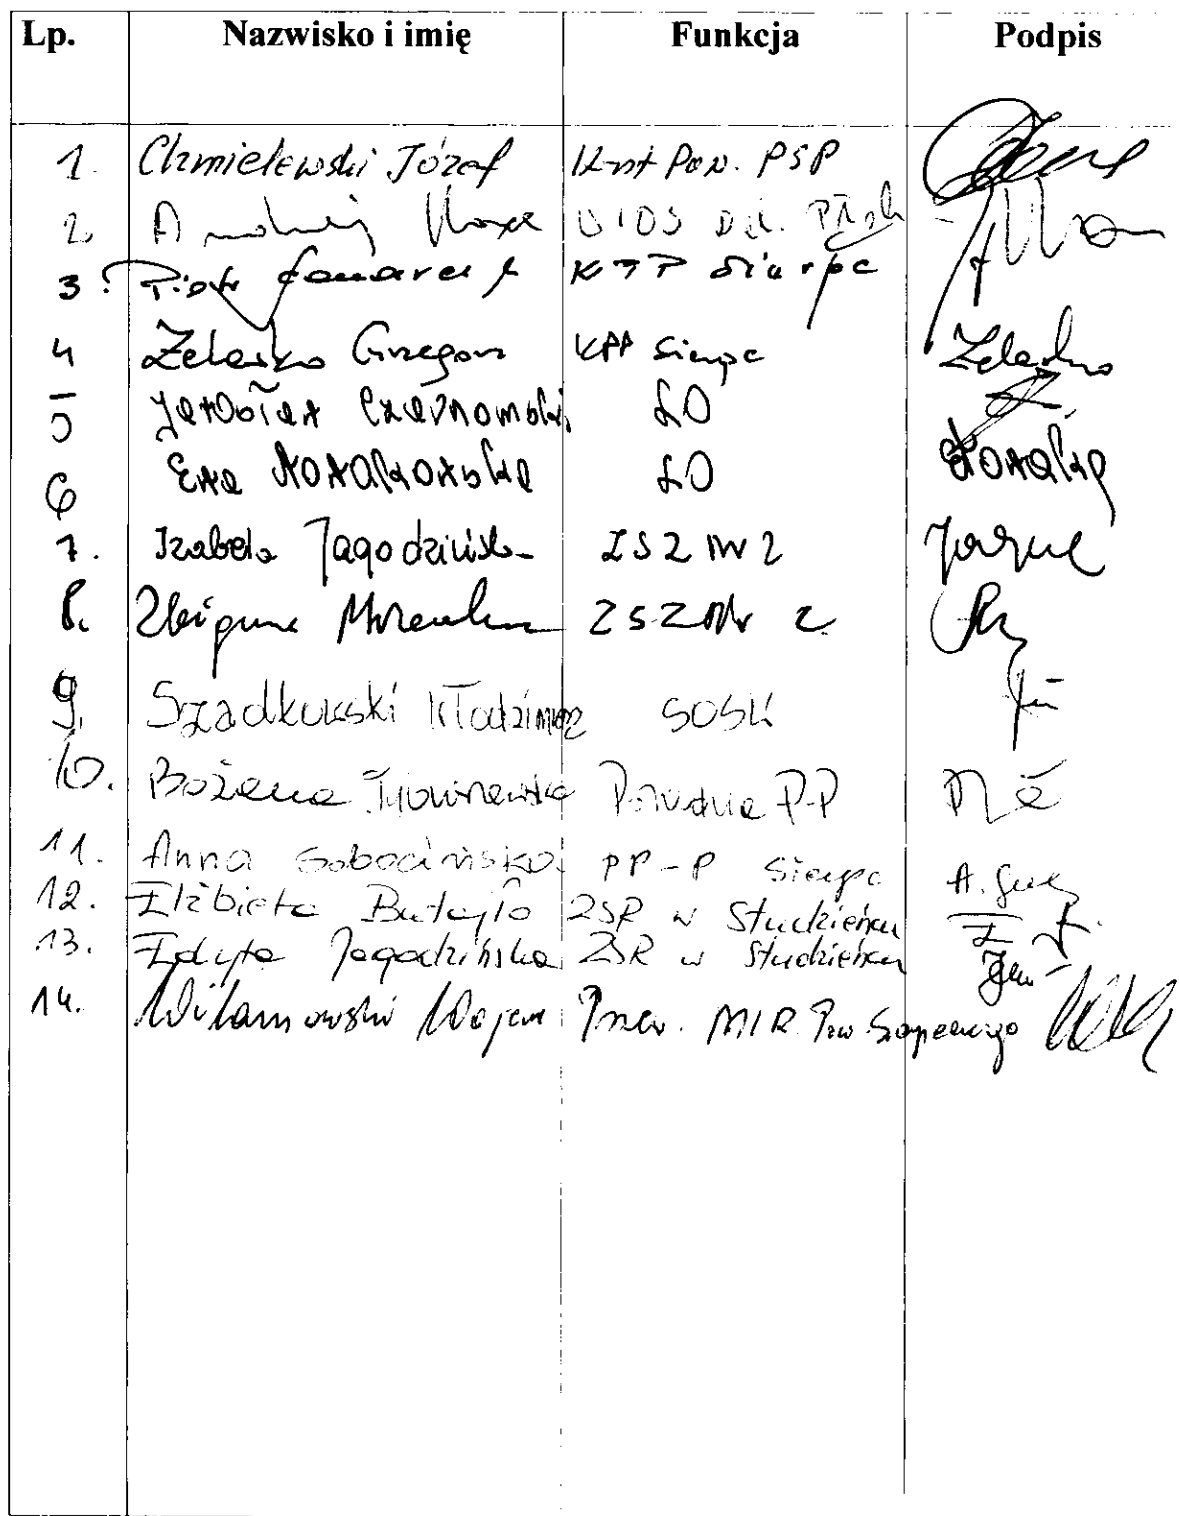 Lp. Nazwisko i imię Funkcja Podpis
1. Chmielewski Józef Kmt Pow. PSP
2. Andrzej WIOŚ Del. Płock
3. Piotr KPP Sierpc
4 Żelasko Grzegorz KPP Sierpc Żelasko
5 Jarosław Czarnomski LO
6 Ewa Nowakowska LO
7. Izabela Jagodzińska ZSZ nr 2
8. Zbigniew ZSZ Nr 2
9. Szadkowski Włodzimierz SOSW
10. Bożena Poradnia P-P
11. Anna Sobocińska PP-P Sierpc
12. Elżbieta Butajło ZSR w Studzieńcu
13. Edyta Jagodzińska ZSR w Studzieńcu
14. Wilamowski MIR